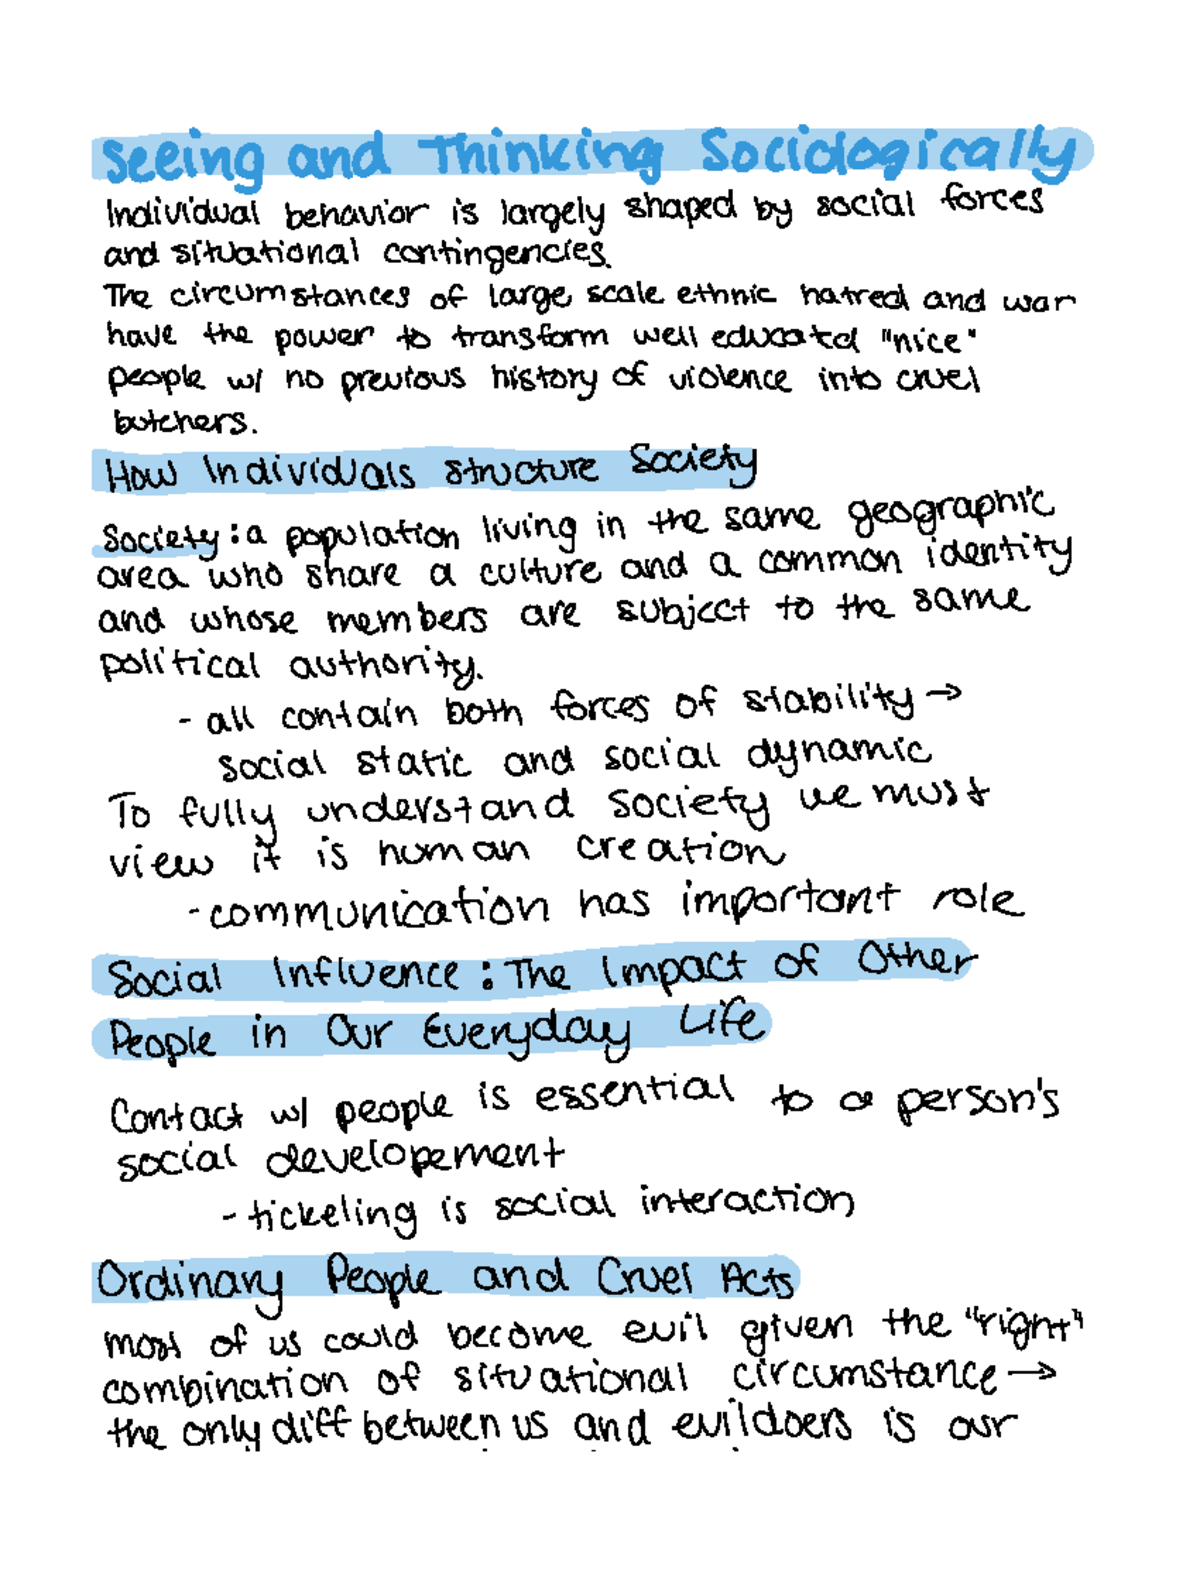 Seeing and Thinking Sociologically
Individual behavior is largely shaped by social forces
and situational contingencies.
The circumstances of large scale ethnic hatred and war
have the power to transform well educated "nice"
people w/ no previous history of violence into cruel
butchers.
How Individuals Structure Society
Society: a population living in the same geographic
area who share a culture and a common identity
and whose members are subject to the same
political authority.
- all contain both forces of stability →
social static and social dynamic
To fully understand society we must
view it is human creation
- communication has important role
Social Influence: The Impact of Other
People in Our Everyday Life
Contact w/ people is essential to a person's
social developement
- tickeling is social interaction
Ordinary People and Cruel Acts
most of us could become evil given the "right"
combination of situational circumstance →
the only diff between us and evildoers is our